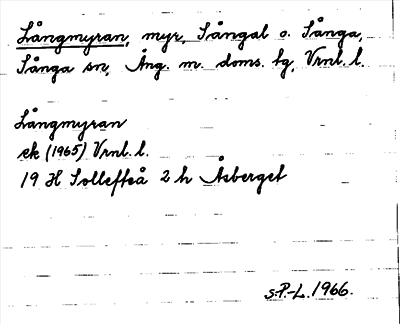 Långmyran, myr, Sångal o. Sånga,
Sånga sn, Ång. m. doms. tg, Vrnl. l.
Långmyran
ek (1965) Vrnl. l.
19 H Sollefteå 2 h Åsberget
S.-P.-L. 1966.